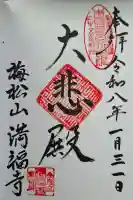 奉拝
令和八年一月三一日
大悲殿
梅松山 満福寺